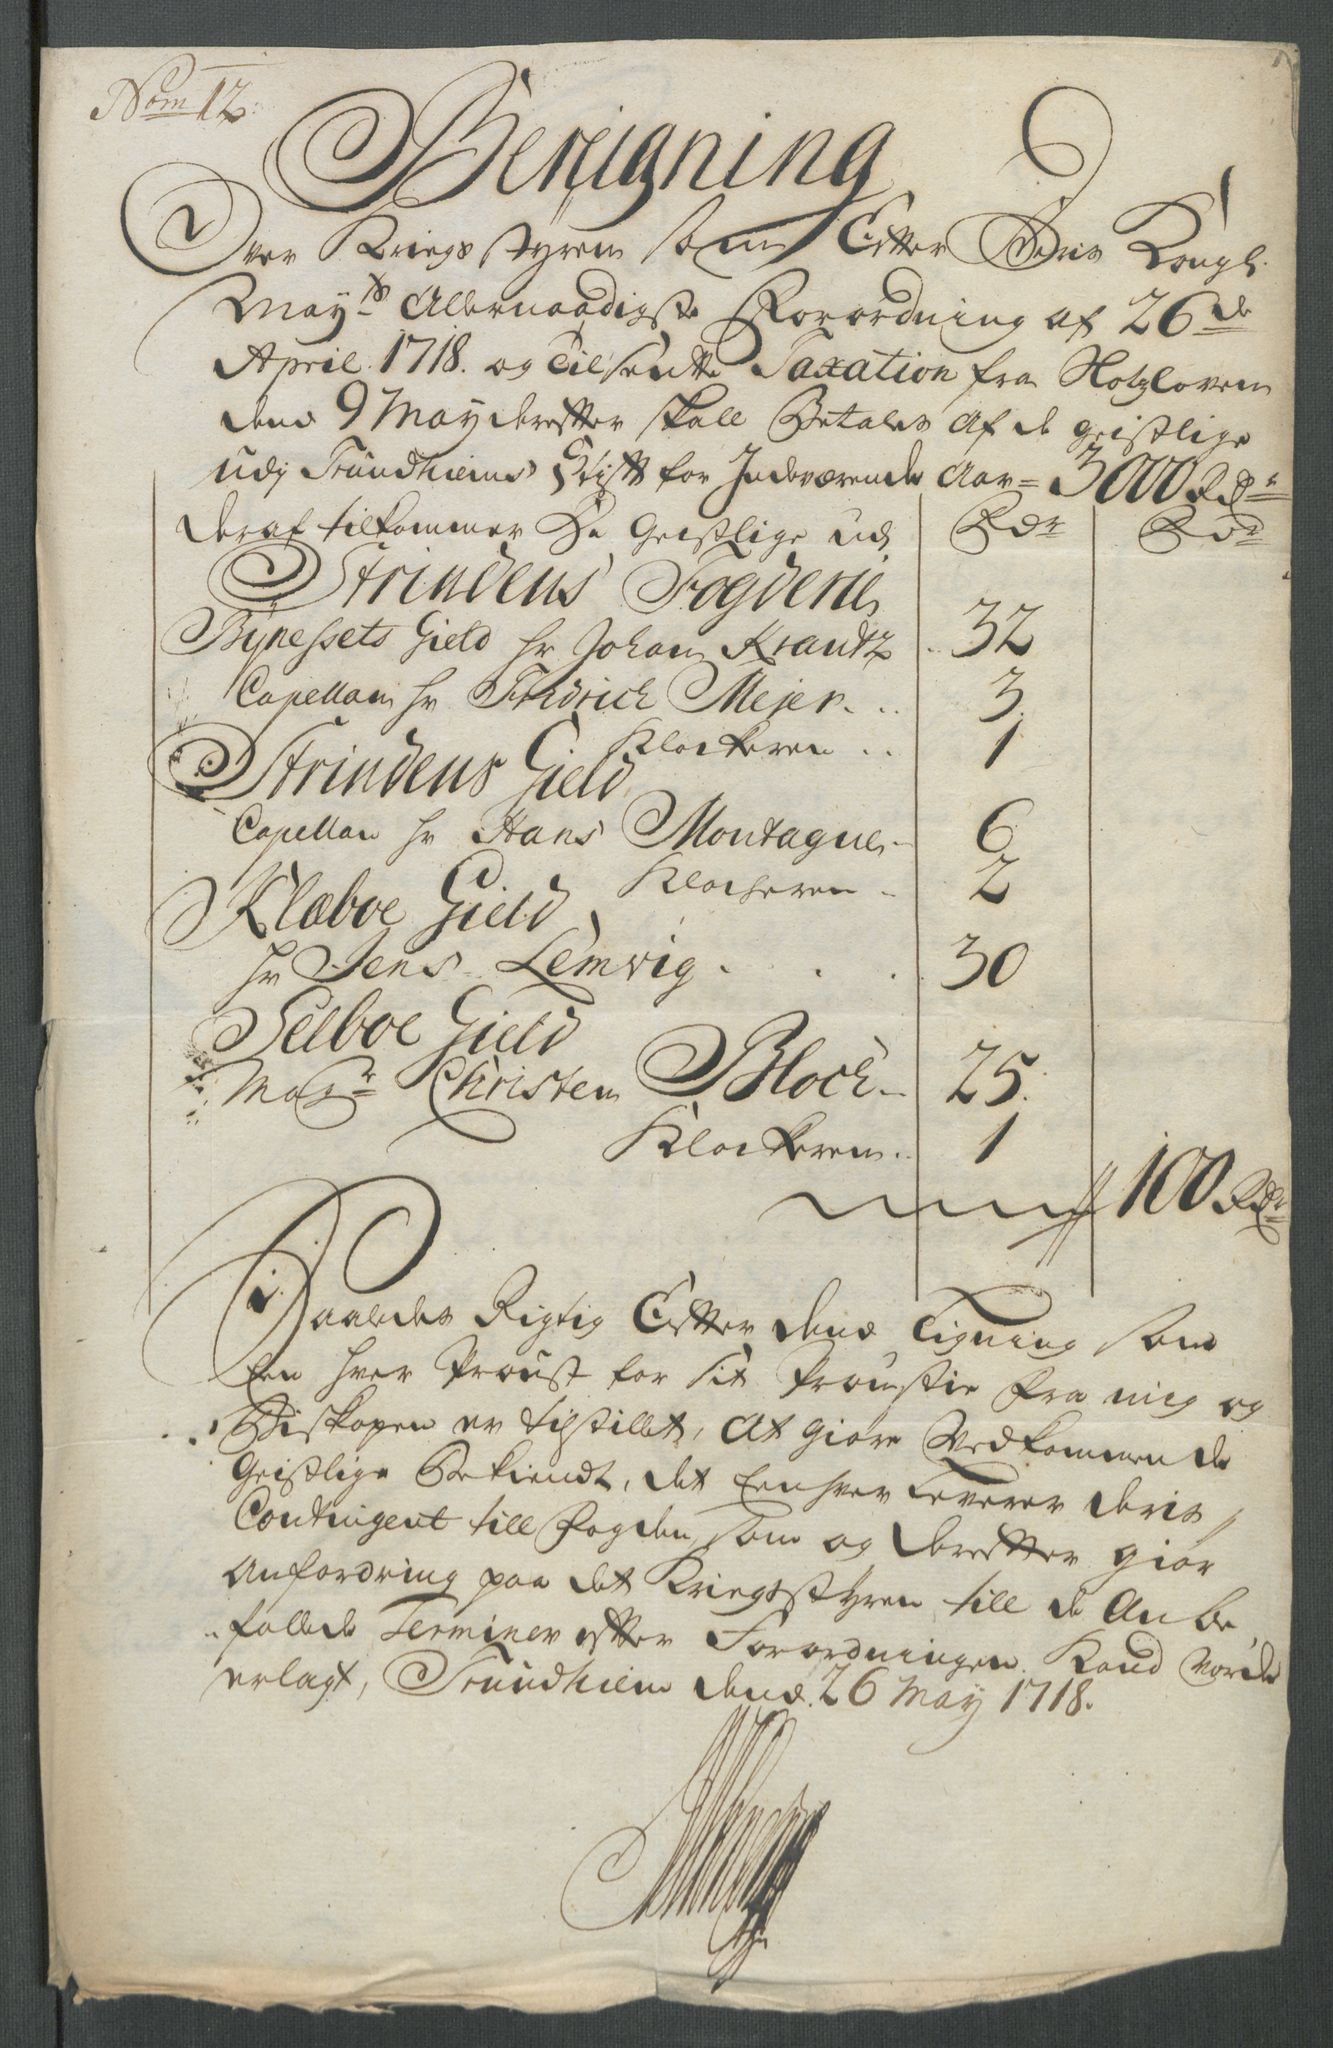 Nom 12.
Beregning
Over Kriegs styren som Efter Deris Kongl.
Mayts Allernaadigste Forordning af 26de
April 1718. og Tilsendte Taxation fra Slotzloven
dend 9 May derefter skall Betales af de geistlige
udj Trundhiems Stift for Indeværende Aar = 3000 Rdr
deraf tilkommer De Geistlige udj Rdr Rdr
Strindens Fogderie
Bynessets Gield hr Johan Krantz .. 32
Capellan hr Fridrich Mejer. .. 3
Klockeren .. 1
Strindens Gield
Capellan hr Hans Montagne - 6
Klockeren - 2
Klæboe Gield
hr Jens Lemvig . . . 30
Selboe Gield
Magr Christen Bloch - 25.
Klockeren .. 1
100 Rdr
Saaledes Rigtig Efter dend Ligning som
Een hver Proust for sit Proustie fra mig og
Biskopen er tilstillet, at giøre Vedkommende
Geistlige Bekiendt, det Eenhver Leverer deris
Contingent till Fogden, som og derefter giør
Anfordring paa det Kriegsstyren till de Anbe
fallede Terminer efter Forordningen Kand vorde
erlagt, Trundhiem dend 26 May 1718.